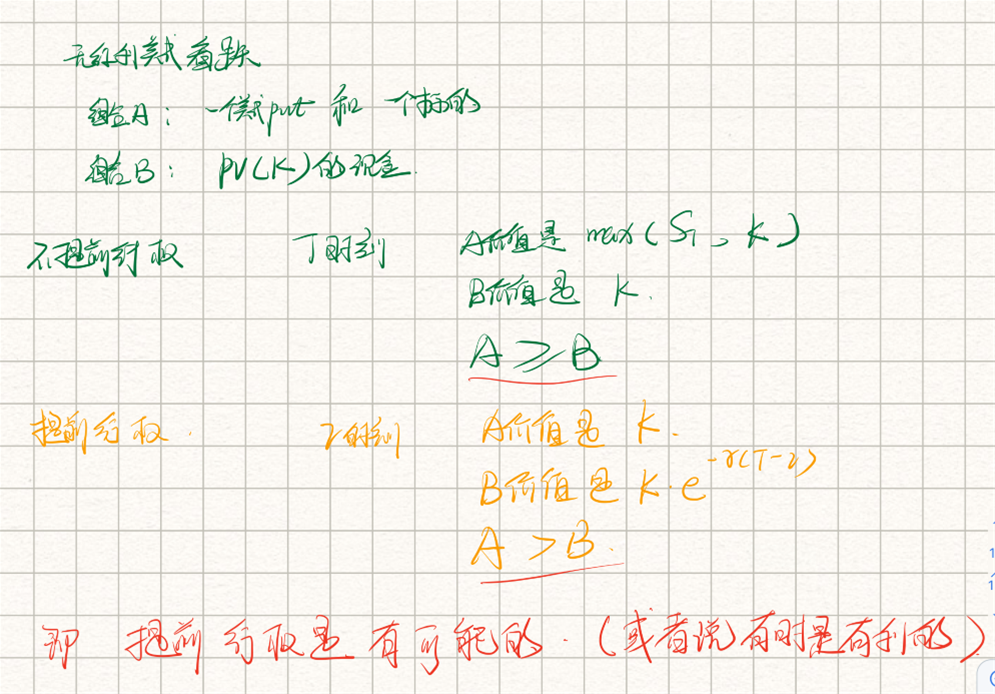 无红利美式看跌
组合A： 一美式put 和 一个标的
组合B： PV(K)的现金.
不提前行权 T时刻 A价值是 max(S_T, K)
B价值是 K.
A ≥ B
提前行权. τ时刻 A价值是 K.
B价值是 K·e^{-r(T-τ)}
A > B.
即 提前行权是有可能的.（或者说有时是有利的）